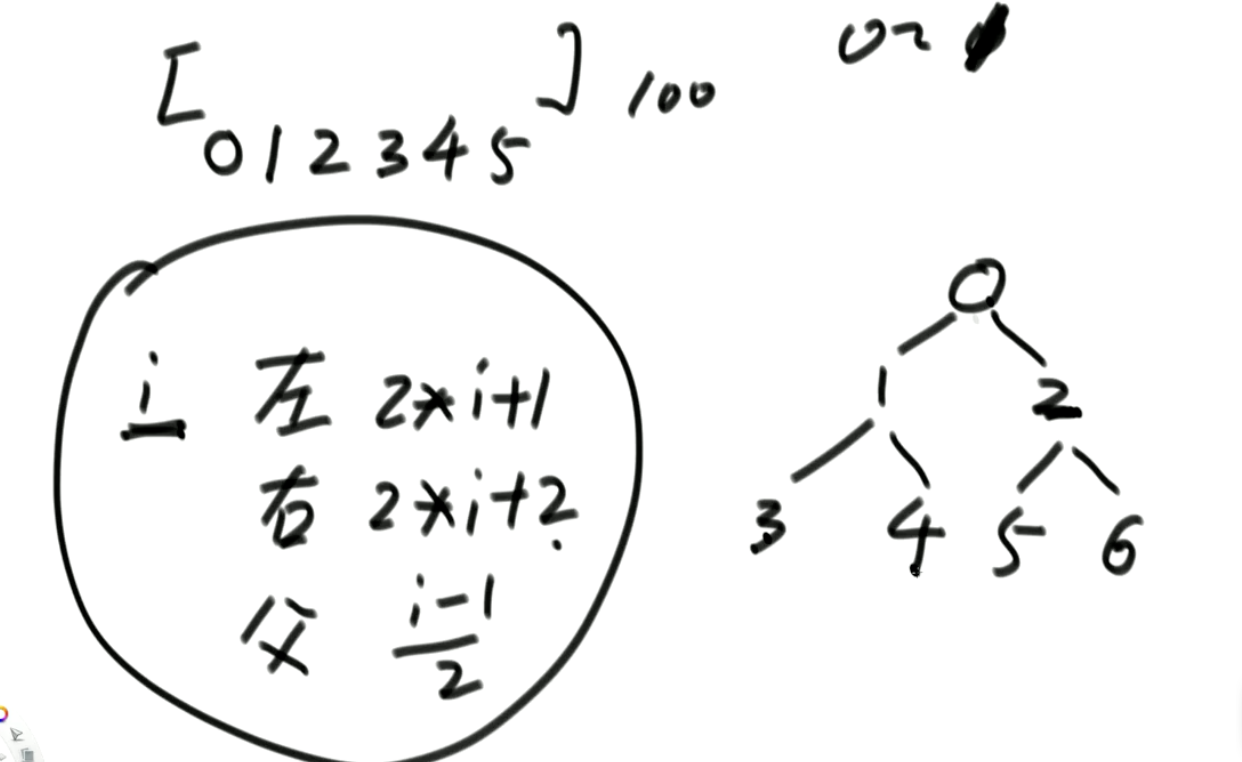 [ ] 100
0 1 2 3 4 5
0~
i 左 2*i+1
右 2*i+2
父 i-1
2
0
1 2
3 4 5 6